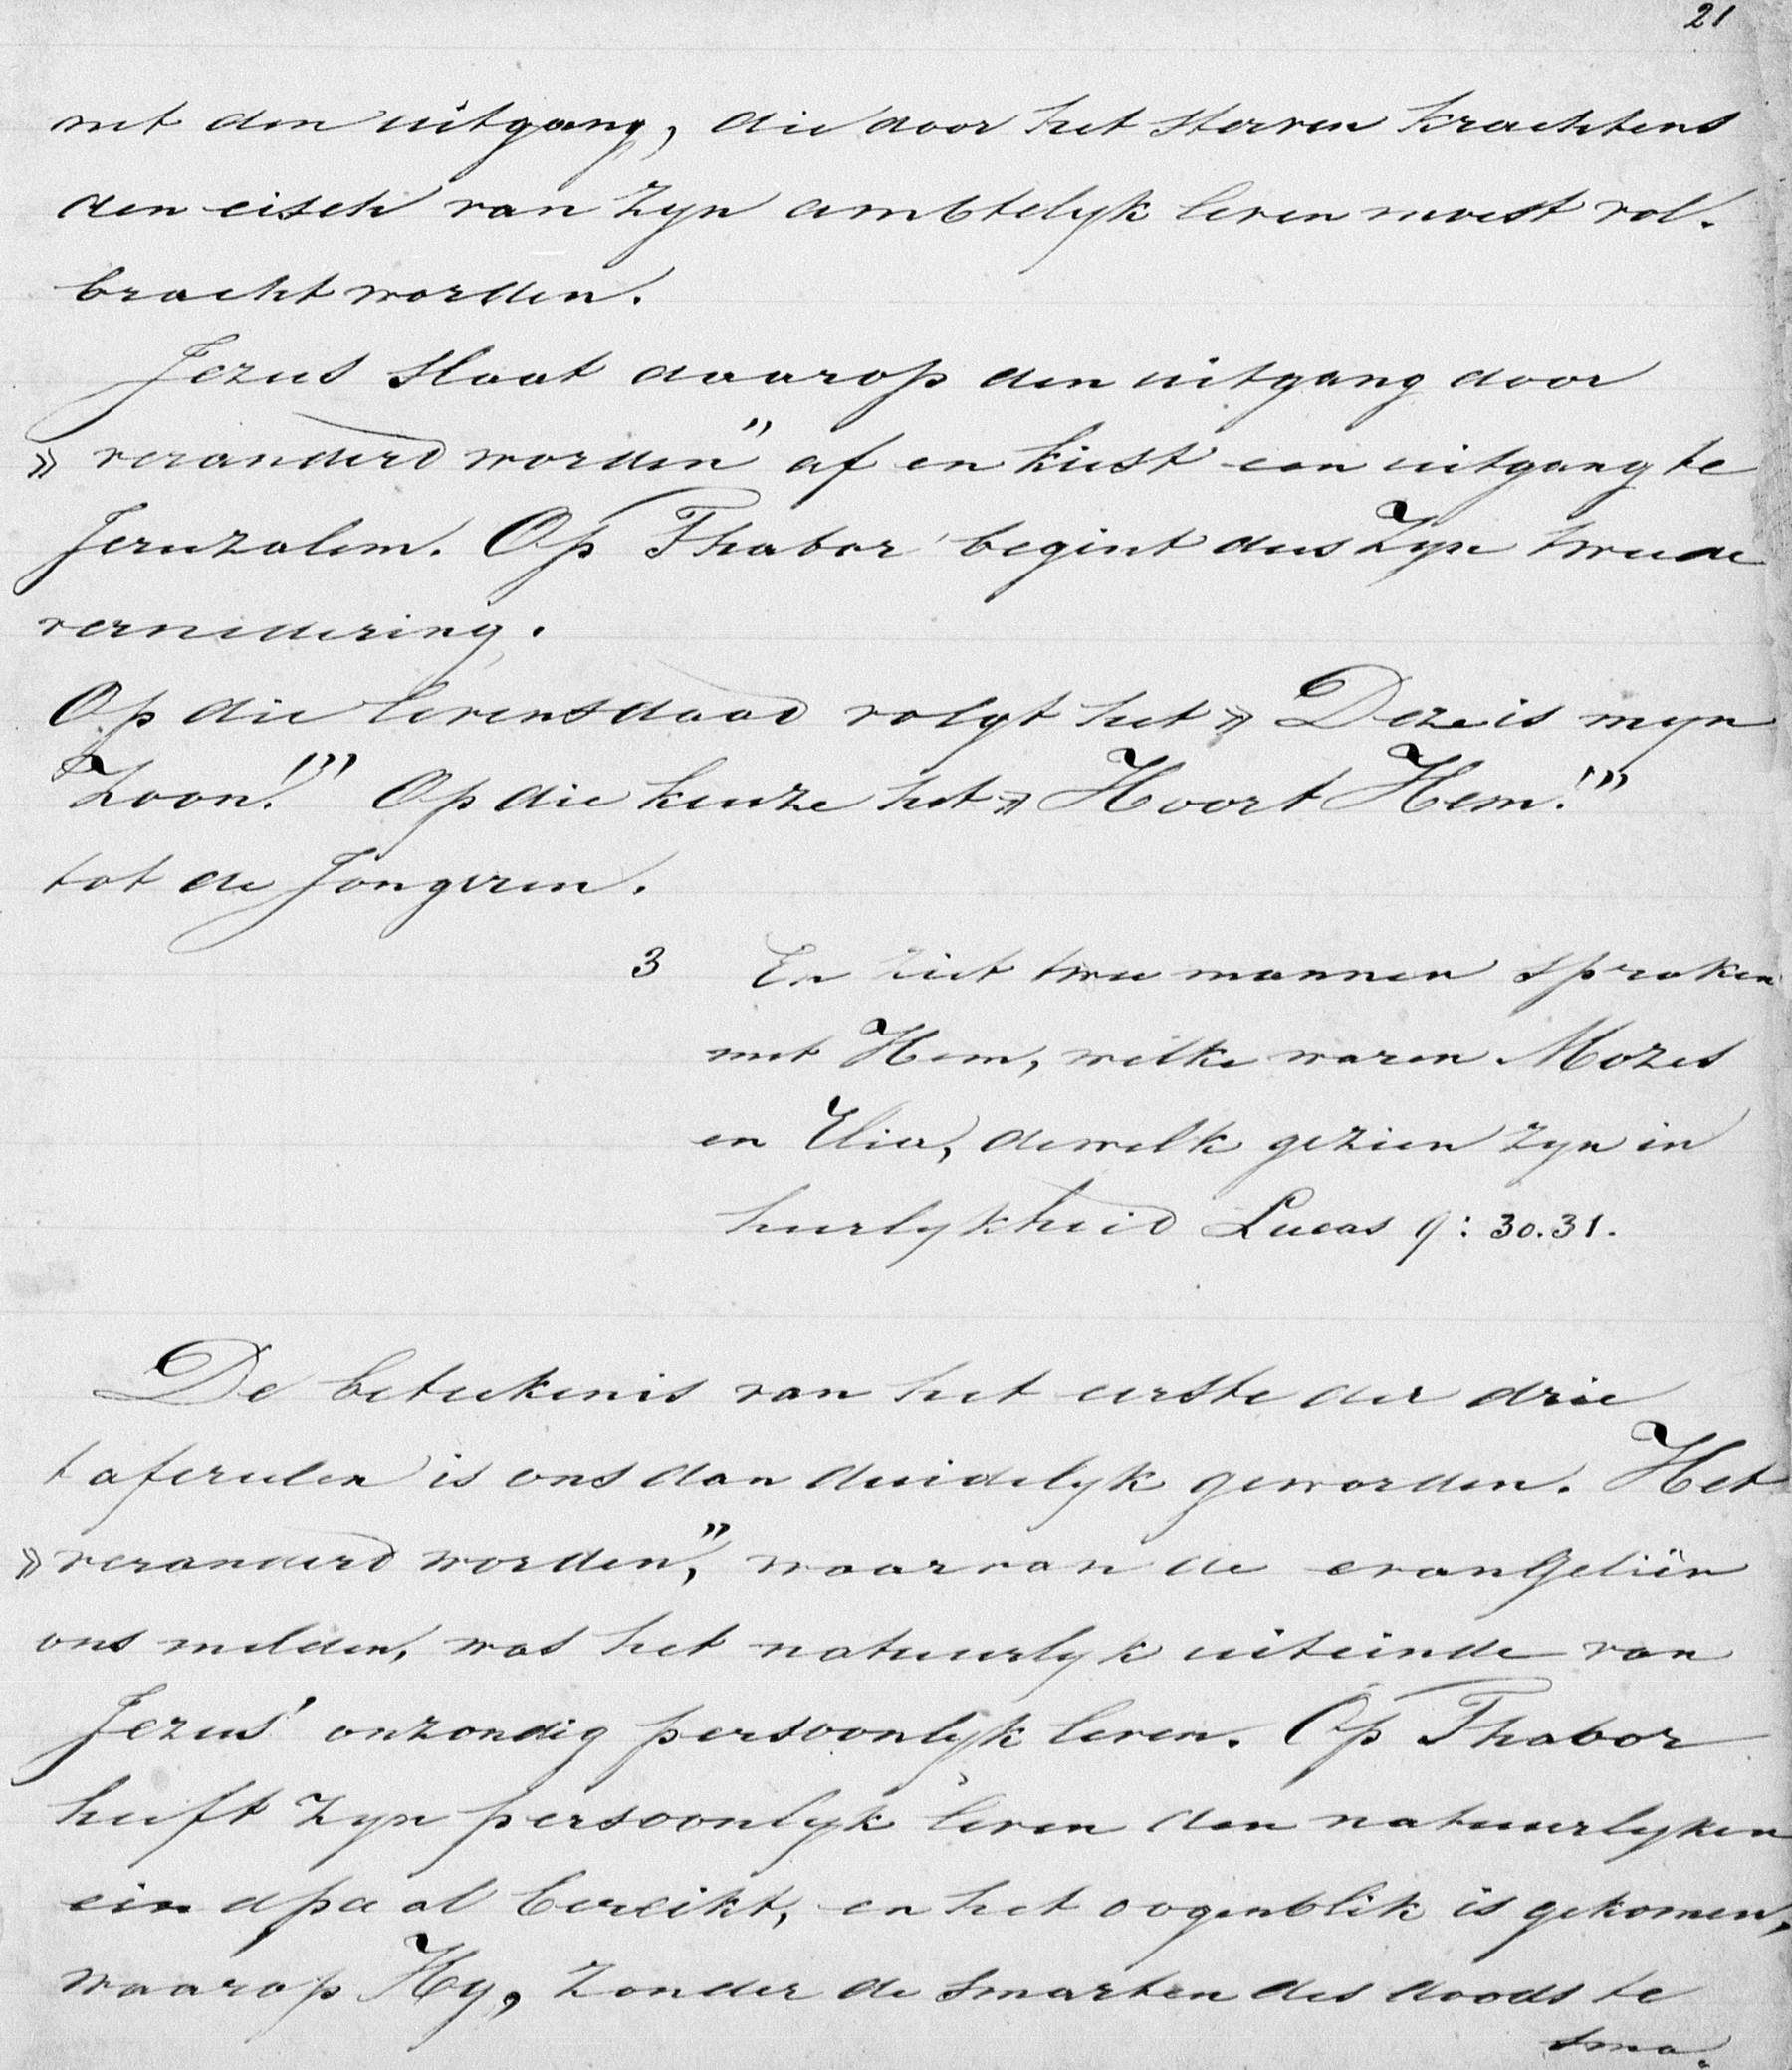 21
met den uitgang, die door het sterven krachtens
den eisch van Zyn ambtelyk leven moest vol-
bracht worden.
Jezus slaat daarop den uitgang door
» veranderd worden" af en kiest een uitgang te
Jeruzalem. Op Thabor begint dus Zyn tweede
vernedering.
Op die levensdaad volgt het » Deze is myn
Zoon!" Op die keuze het » Hoort Hem!"
tot de Jongeren.
3 En ziet twee mannen spraken
met Hem, welke waren Mozes
en Elia, dewelk gezien zyn in
heerlykheid Lucas 9: 30.31.
De beteekenis van het eerste der drie
tafereelen is ons dan duidelyk geworden. Het
» veranderd worden," waarvan de evangeliën
ons melden, was het natuurlyk uiteinde van
Jezus' onzondig persoonlyk leven. Op Thabor
heeft Zyn persoonlyk leven den natuurlyken
eindpaal bereikt, en het oogenblik is gekomen,
waarop Hy, zonder de smarten des doods te
sma-